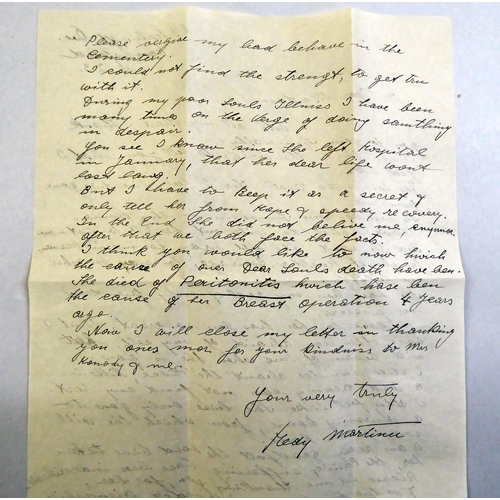 Please vergive my bad behave in the
Cementery.
I could not find the strengt, to get tru
with it.
During my poor Souls Illniss I have been
many times on the Verge of doing samthing
in despair.
You see I know since She left Hospital
in January, that her dear life wont
last long.
But I have to keep it as a secret &
only tell her from hope & speedy recovery.
In the End She did not belive me anymore
after that we both face the facts.
I think you would like to now hwich
the cause of over Dear Souls death have ben.
She died of Peritonitis hwich hase ben
the cause of her Breast operation 4 Years
ago.
Now I will close my letter in thanking
you ones mor for your kindness to Mrs
Konody & me.
Your very truly
Hedy Martinu